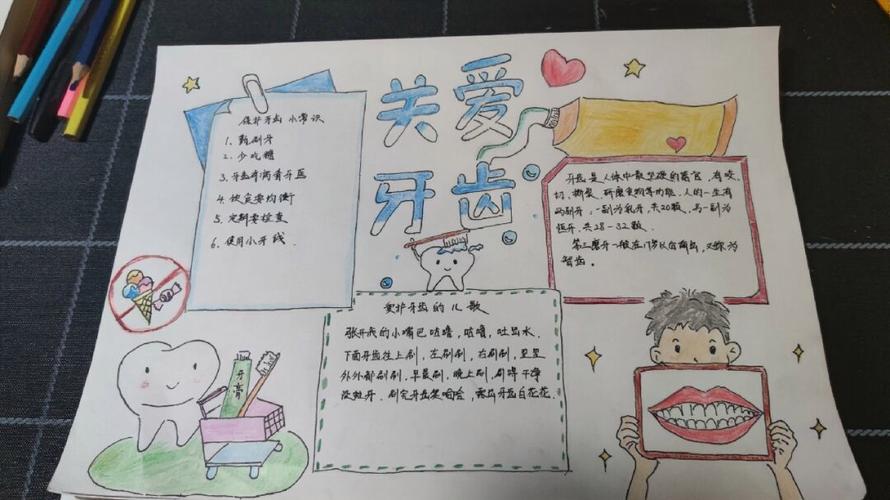 关爱
牙齿
保护牙齿小常识
1. 勤刷牙
2. 少吃糖
3. 牙齿有病看牙医
4. 饮食要均衡
5. 定期要检查
6. 使用小牙线.
牙齿是人体中最坚硬的器官,有咬
切、撕裂、研磨食物等功能.人的一生有
两副牙,一副为乳牙,共20颗,另一副为
恒牙,共28-32颗.
第三磨牙一般在17岁以后萌出,又称为
智齿。
爱护牙齿的儿歌
张开我的小嘴巴咕噜,咕噜,吐出水.
下面牙齿往上刷,左刷刷,右刷刷,里里
外外都刷刷,早晨刷,晚上刷,刷得干净
没蛀牙.刷完牙齿笑哈哈,露出牙齿白花花.
牙膏